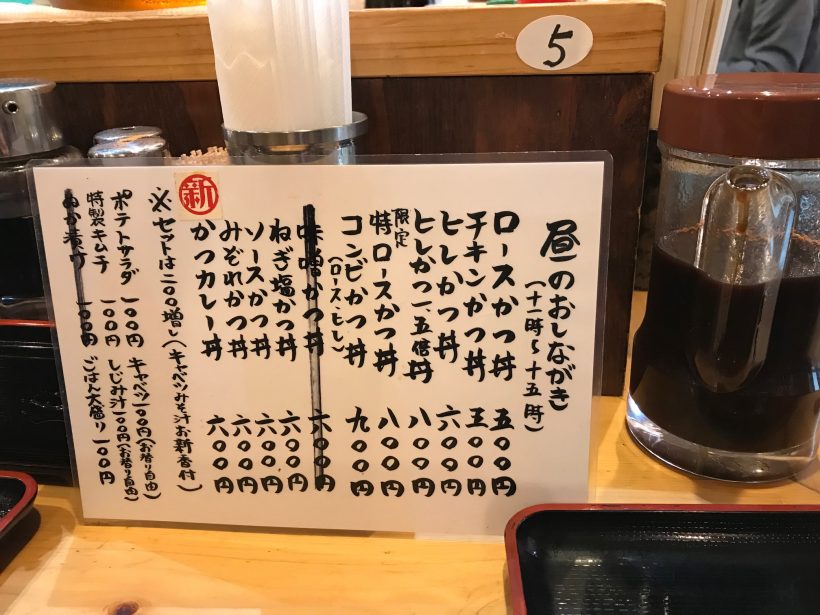 5
昼のおしながき
(十一時～十五時)
ロースかつ丼 五〇〇円
チキンかつ丼 五〇〇円
ヒレかつ丼 六〇〇円
ヒレかつ一、五倍丼 八〇〇円
限定 特ロースかつ丼 八〇〇円
コンビかつ丼 九〇〇円
(ロース・ヒレ)
味噌かつ丼 六〇〇円
ねぎ塩かつ丼 六〇〇円
ソースかつ丼 六〇〇円
みぞれかつ丼 六〇〇円
新 かつカレー丼 六〇〇円
※セットは二〇〇増し(キャベツみそ汁お新香付)
ポテトサラダ 一〇〇円 キャベツ一〇〇円(お替り自由)
特製キムチ 一〇〇円 しじみ汁一〇〇円(お替り自由)
ぬか漬け 一〇〇円 ごはん大盛り一〇〇円